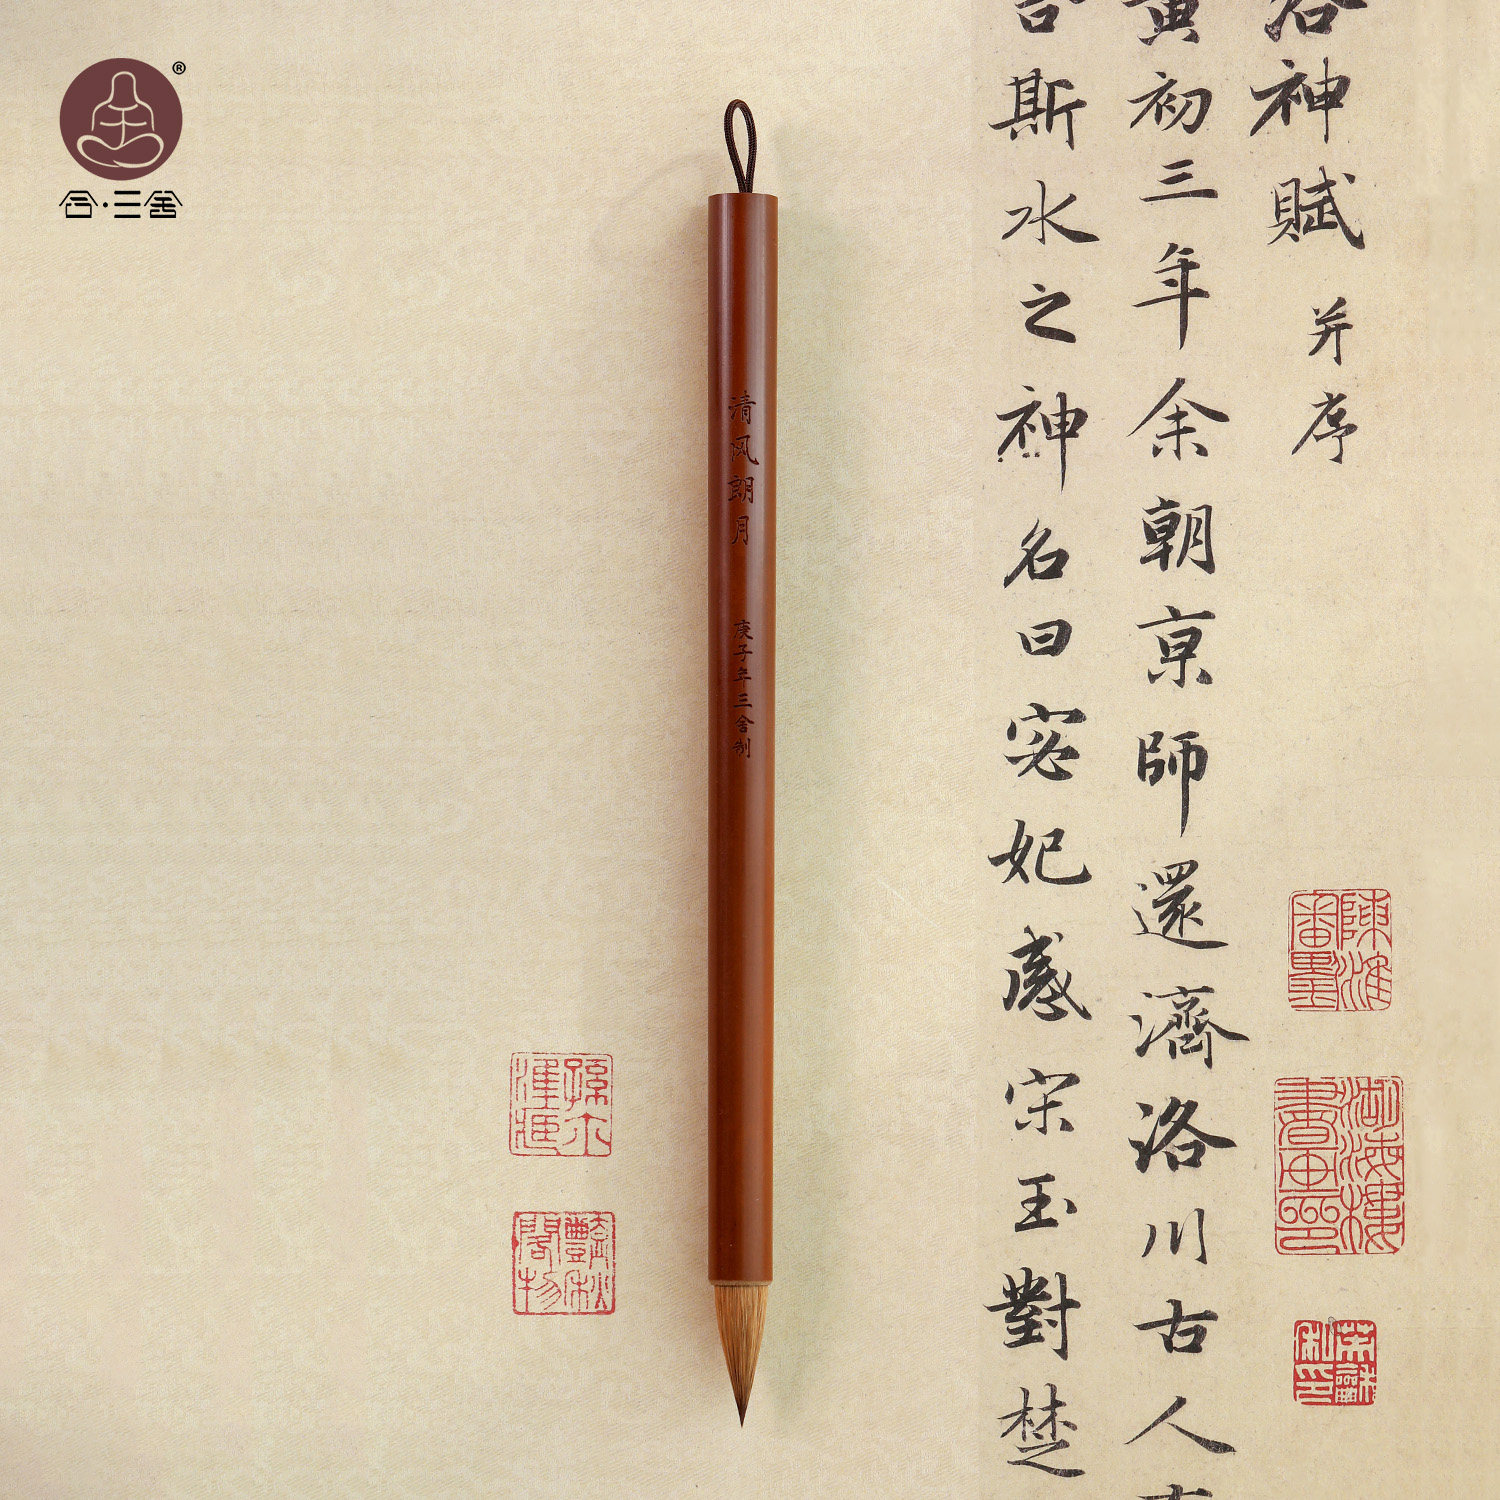 ®
合·三舍
洛神賦 并序
黃初三年余朝京師還濟洛川古人
言斯水之神名曰宓妃感宋玉對楚
清风朗月
庚子年三舍制
豔秋閣物